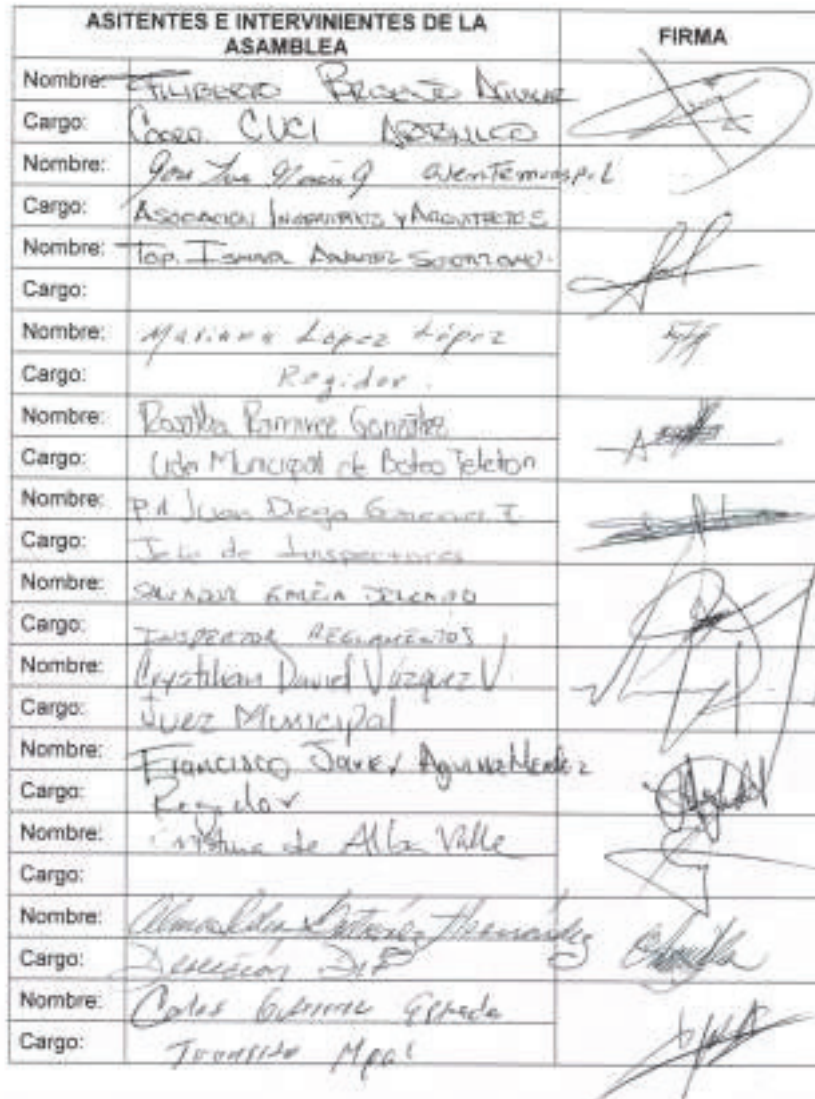 ASITENTES E INTERVINIENTES DE LA
ASAMBLEA
FIRMA
Nombre: FILIBERTO
Cargo: COORD. CUCI
Nombre: Jose Luis
Cargo: ASOCIACION INGENIEROS Y ARQUITECTOS
Nombre: Top. ISMAEL
Cargo:
Nombre: Mariana López López
Cargo: Regidor.
Nombre: Rosalba Ramirez González
Cargo: Municipal de Boteo Teleton
Nombre: Juan Diego
Cargo: Jefe de Inspectores
Nombre: SALVADOR GARCÍA
Cargo: INSPECTOR REGLAMENTOS
Nombre: Crystihian David Vázquez V
Cargo: Juez Municipal
Nombre: Francisco Javier
Cargo: Regidor
Nombre: Cristina de Alba Valle
Cargo:
Nombre: Gutiérrez Hernández
Cargo: Dirección DIF
Nombre: Carlos Gutierrez
Cargo: Transito Mpal